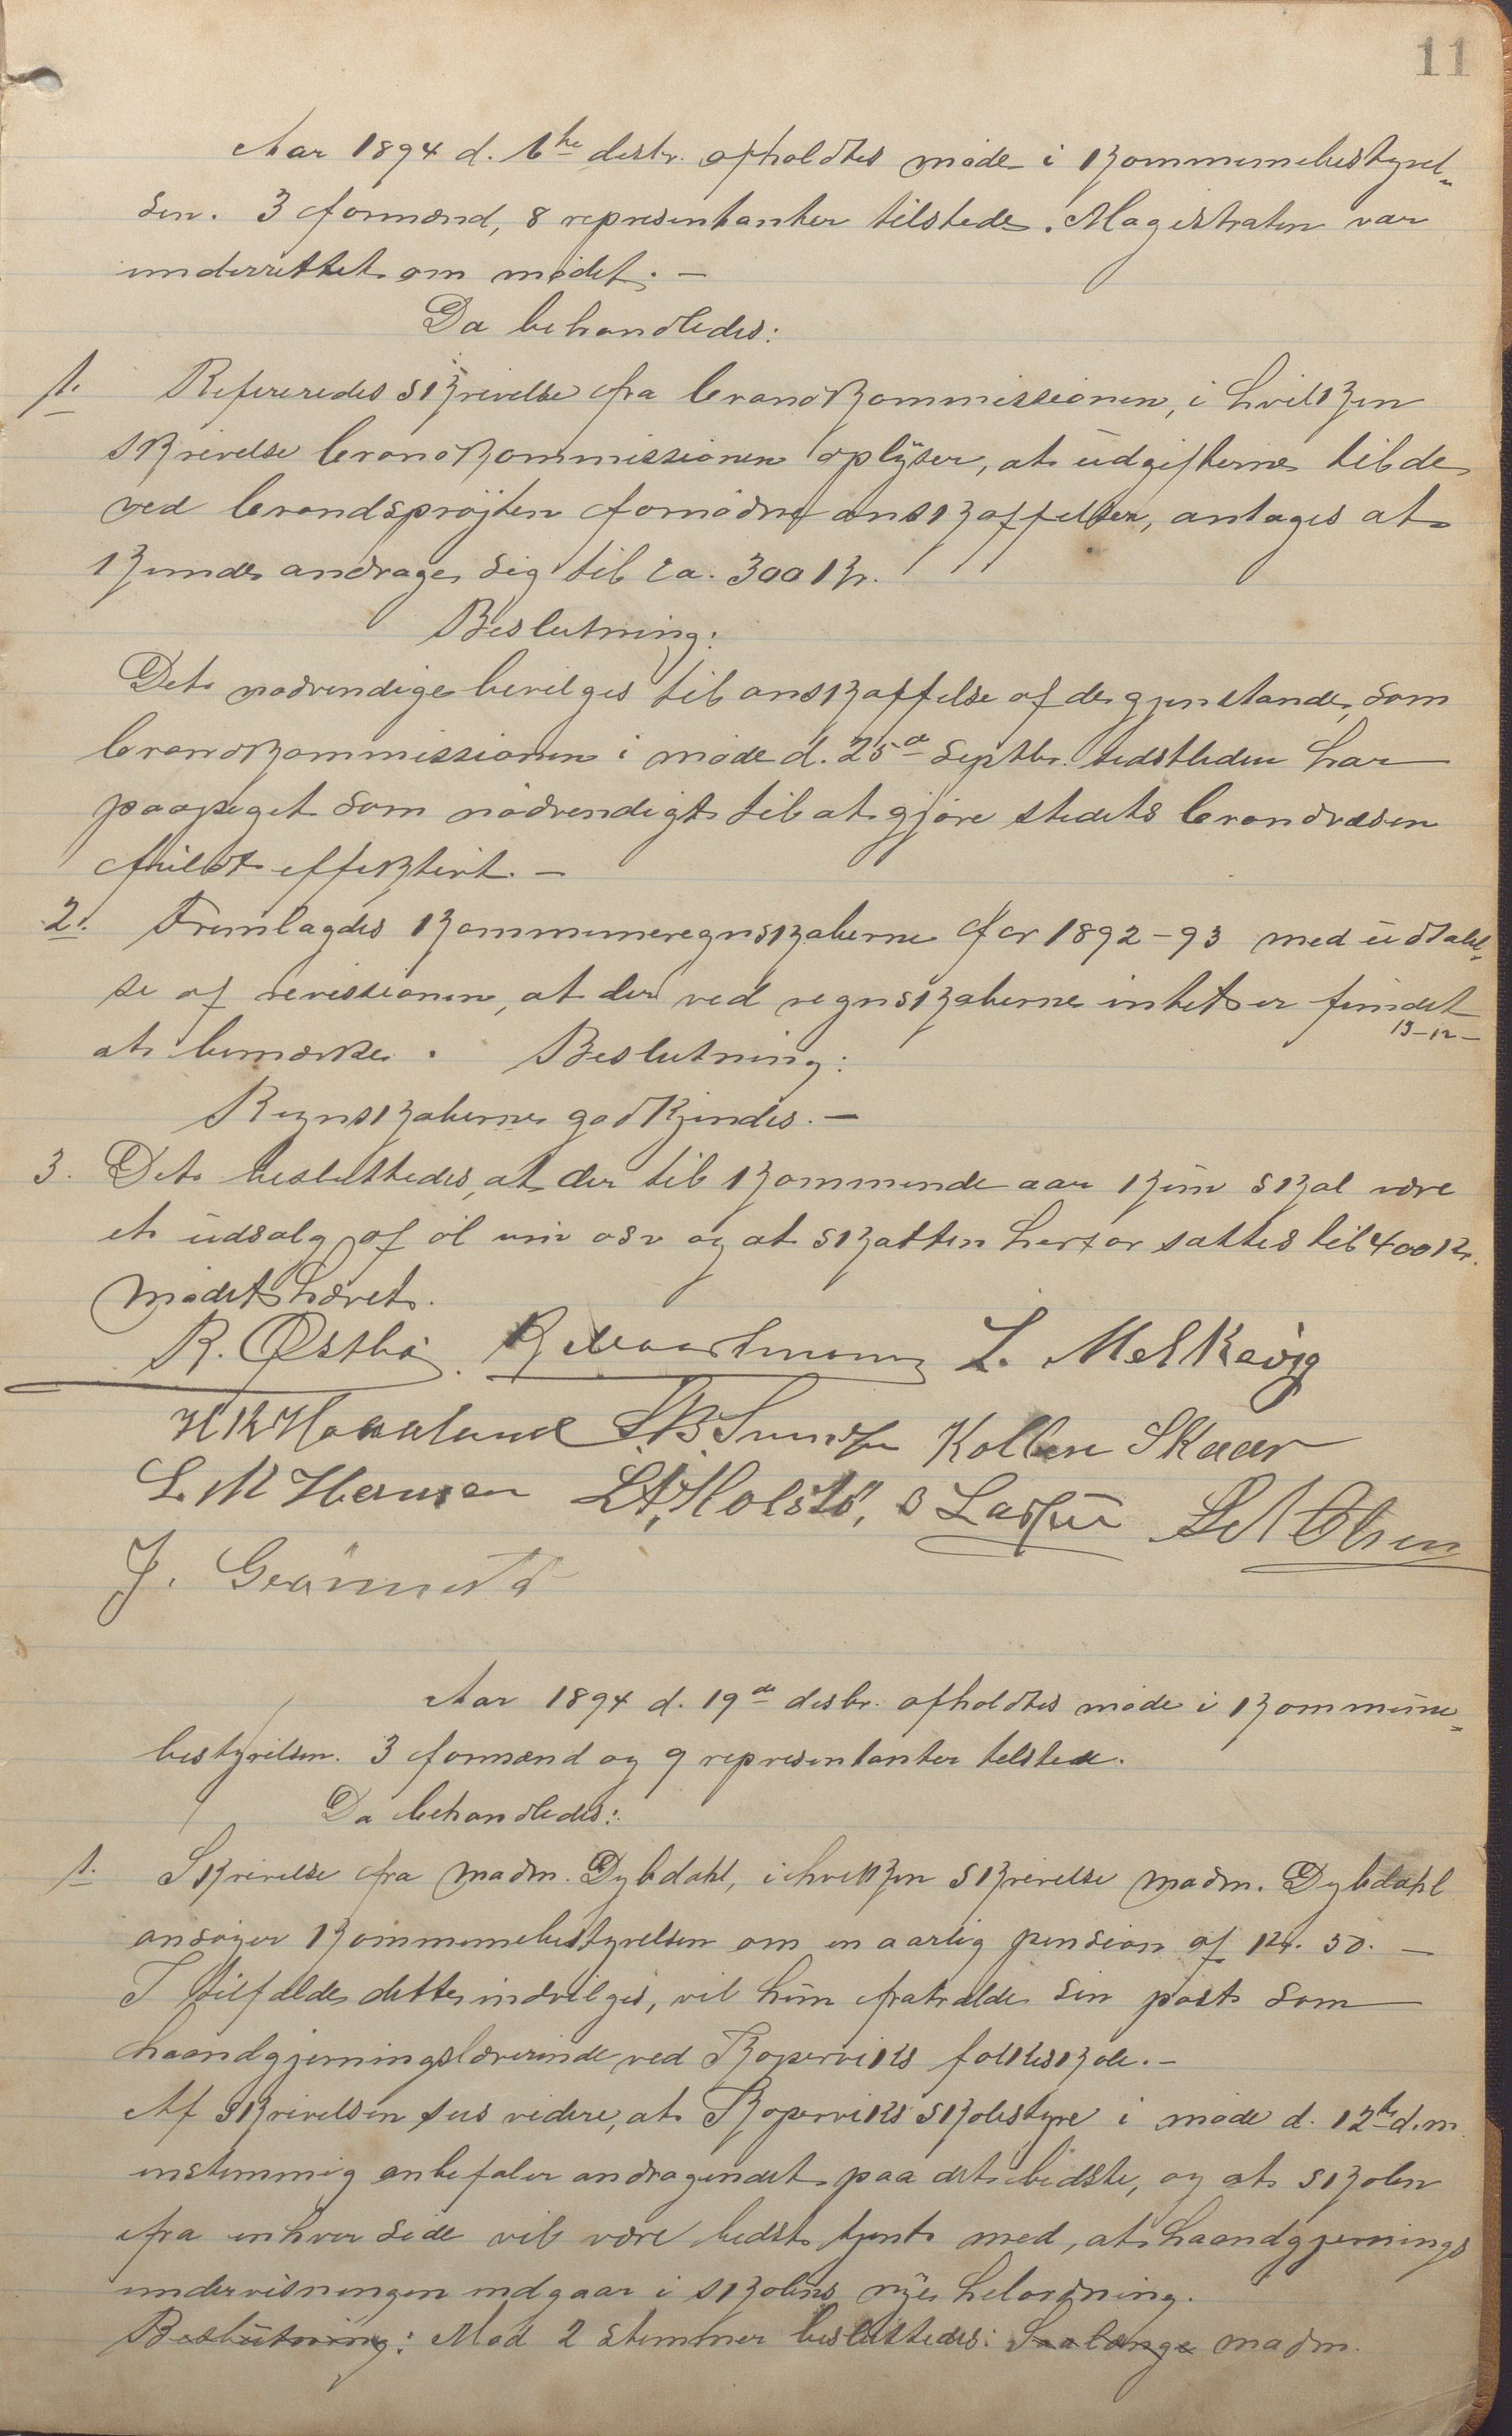 11
Aar 1894 d. 6te desbr. afholdtes møde i kommunebestyrel-
sen. 3 formænd, 8 representanter tilstede. Magistraten var
underrettet om mødet. –
Da behandledes:
1. Refereredes skrivelse fra brandkommissionen, i hvilken
skrivelse brandkommissionen oplyser, at udgifterne til de
ved brandsprøjten fornødne anskaffelser, antages at
kunde andrage sig til ca. 300 kr.
Beslutning:
Det nødvendige bevilges til anskaffelse af de gjenstande, som
brandkommissionen i møde d. 25de septbr. sidstleden har
paapeget som nødvendigt til at gjøre stedets brandvæsen
fuldt effektivt. –
2. Fremlagdes kommuneregnskaberne for 1892-93 med udtalel-
se af revissionen, at der ved regnskaberne intet er fundet
13-12-
at bemærke. Beslutning:
Regnskaberne godkjendes. –
3. Det besluttedes, at der til kommende aar kun skal være
et udsalg af øl vin osv og at skatten herfor sattes til 400 kr.
Mødet hævet.
R. Østbø L. Melkevig
H K Hovland S.B. Sund Kolben Skaar
L. M Hansen L.A. Holstø, S Larsen L A Olsen
J. Grönnestad
Aar 1894 d. 19de desbr. afholdtes møde i kommune-
bestyrelsen. 3 formænd og 9 representanter tilstede.
Da behandledes:
1. Skrivelse fra madm. Dybdahl, i hvilken skrivelse madm. Dybdahl
ansøger kommunebestyrelsen om en aarlig pension af kr. 50. –
I tilfælde dette indvilges, vil hun fratræde sin post som
haandgjerningslærerinde ved Kopervik's folkeskole. –
Af skrivelsen sees videre, at Kopervik's skolestyre i møde d. 12te d.m.
enstemmig anbefaler andragendet paa det bedste, og at skolen
fra enhver side vil være bedst tjent med, at haandgjernings
undervisningen indgaar i skolens nye helordning.
Beslutning: Mod 2 stemmer besluttedes: Saalænge madm.